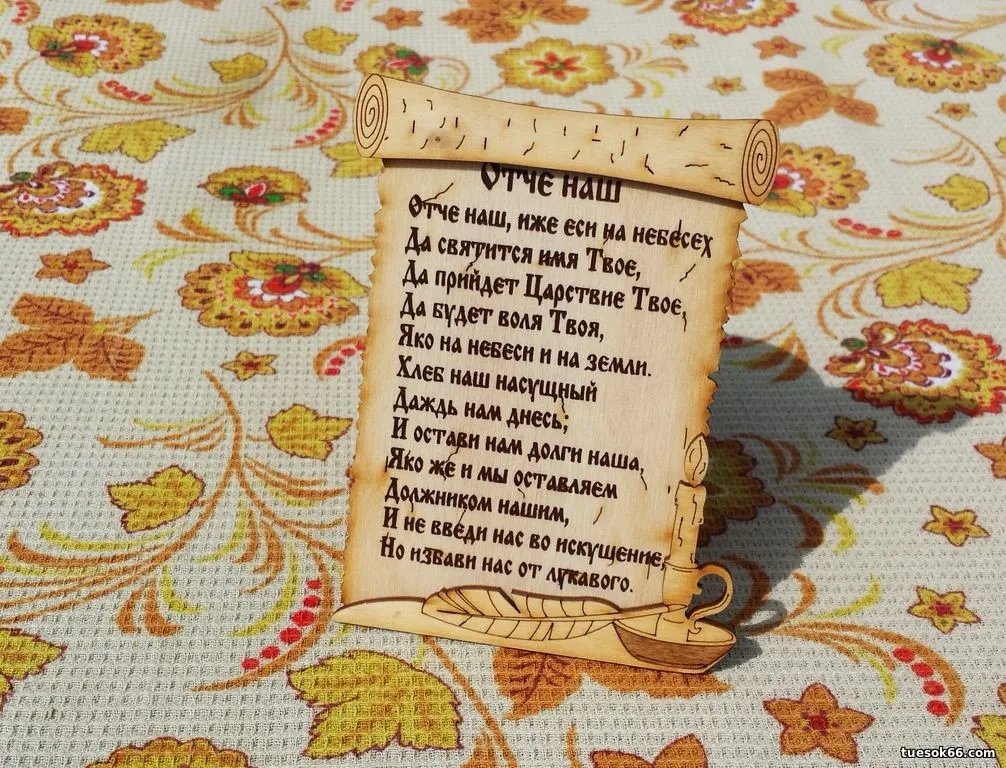 Отче наш
Отче наш, иже еси на небесех
Да святится имя Твое,
Да прийдет Царствие Твое,
Да будет воля Твоя,
Яко на небеси и на земли.
Хлеб наш насущный
Даждь нам днесь;
И остави нам долги наша,
Яко же и мы оставляем
Должником нашим,
И не введи нас во искущение,
Но избави нас от лукавого.
tuesok66.com